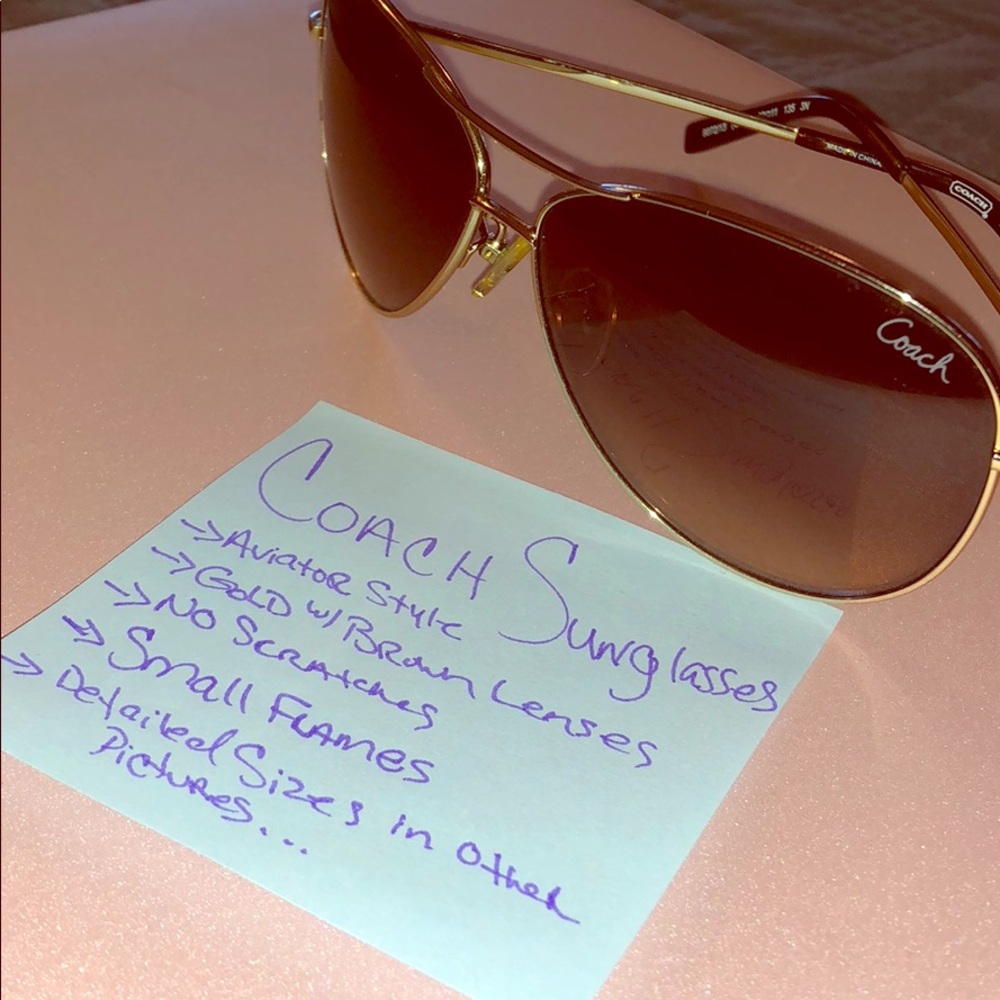 135 3N
MADE IN CHINA
COACH
Coach
COACH Sunglasses
→ Aviator Style
→ GOLD w/ Brown Lenses
→ NO SCRAtches
→ Small FRAMES
→ Detailed Sizes in Other
Pictures...